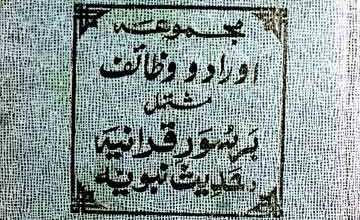 مجموعہ
اوراد و وظائف
مشتمل
بر سُوَرِ قرآنیہ
و حدیث نبویہ